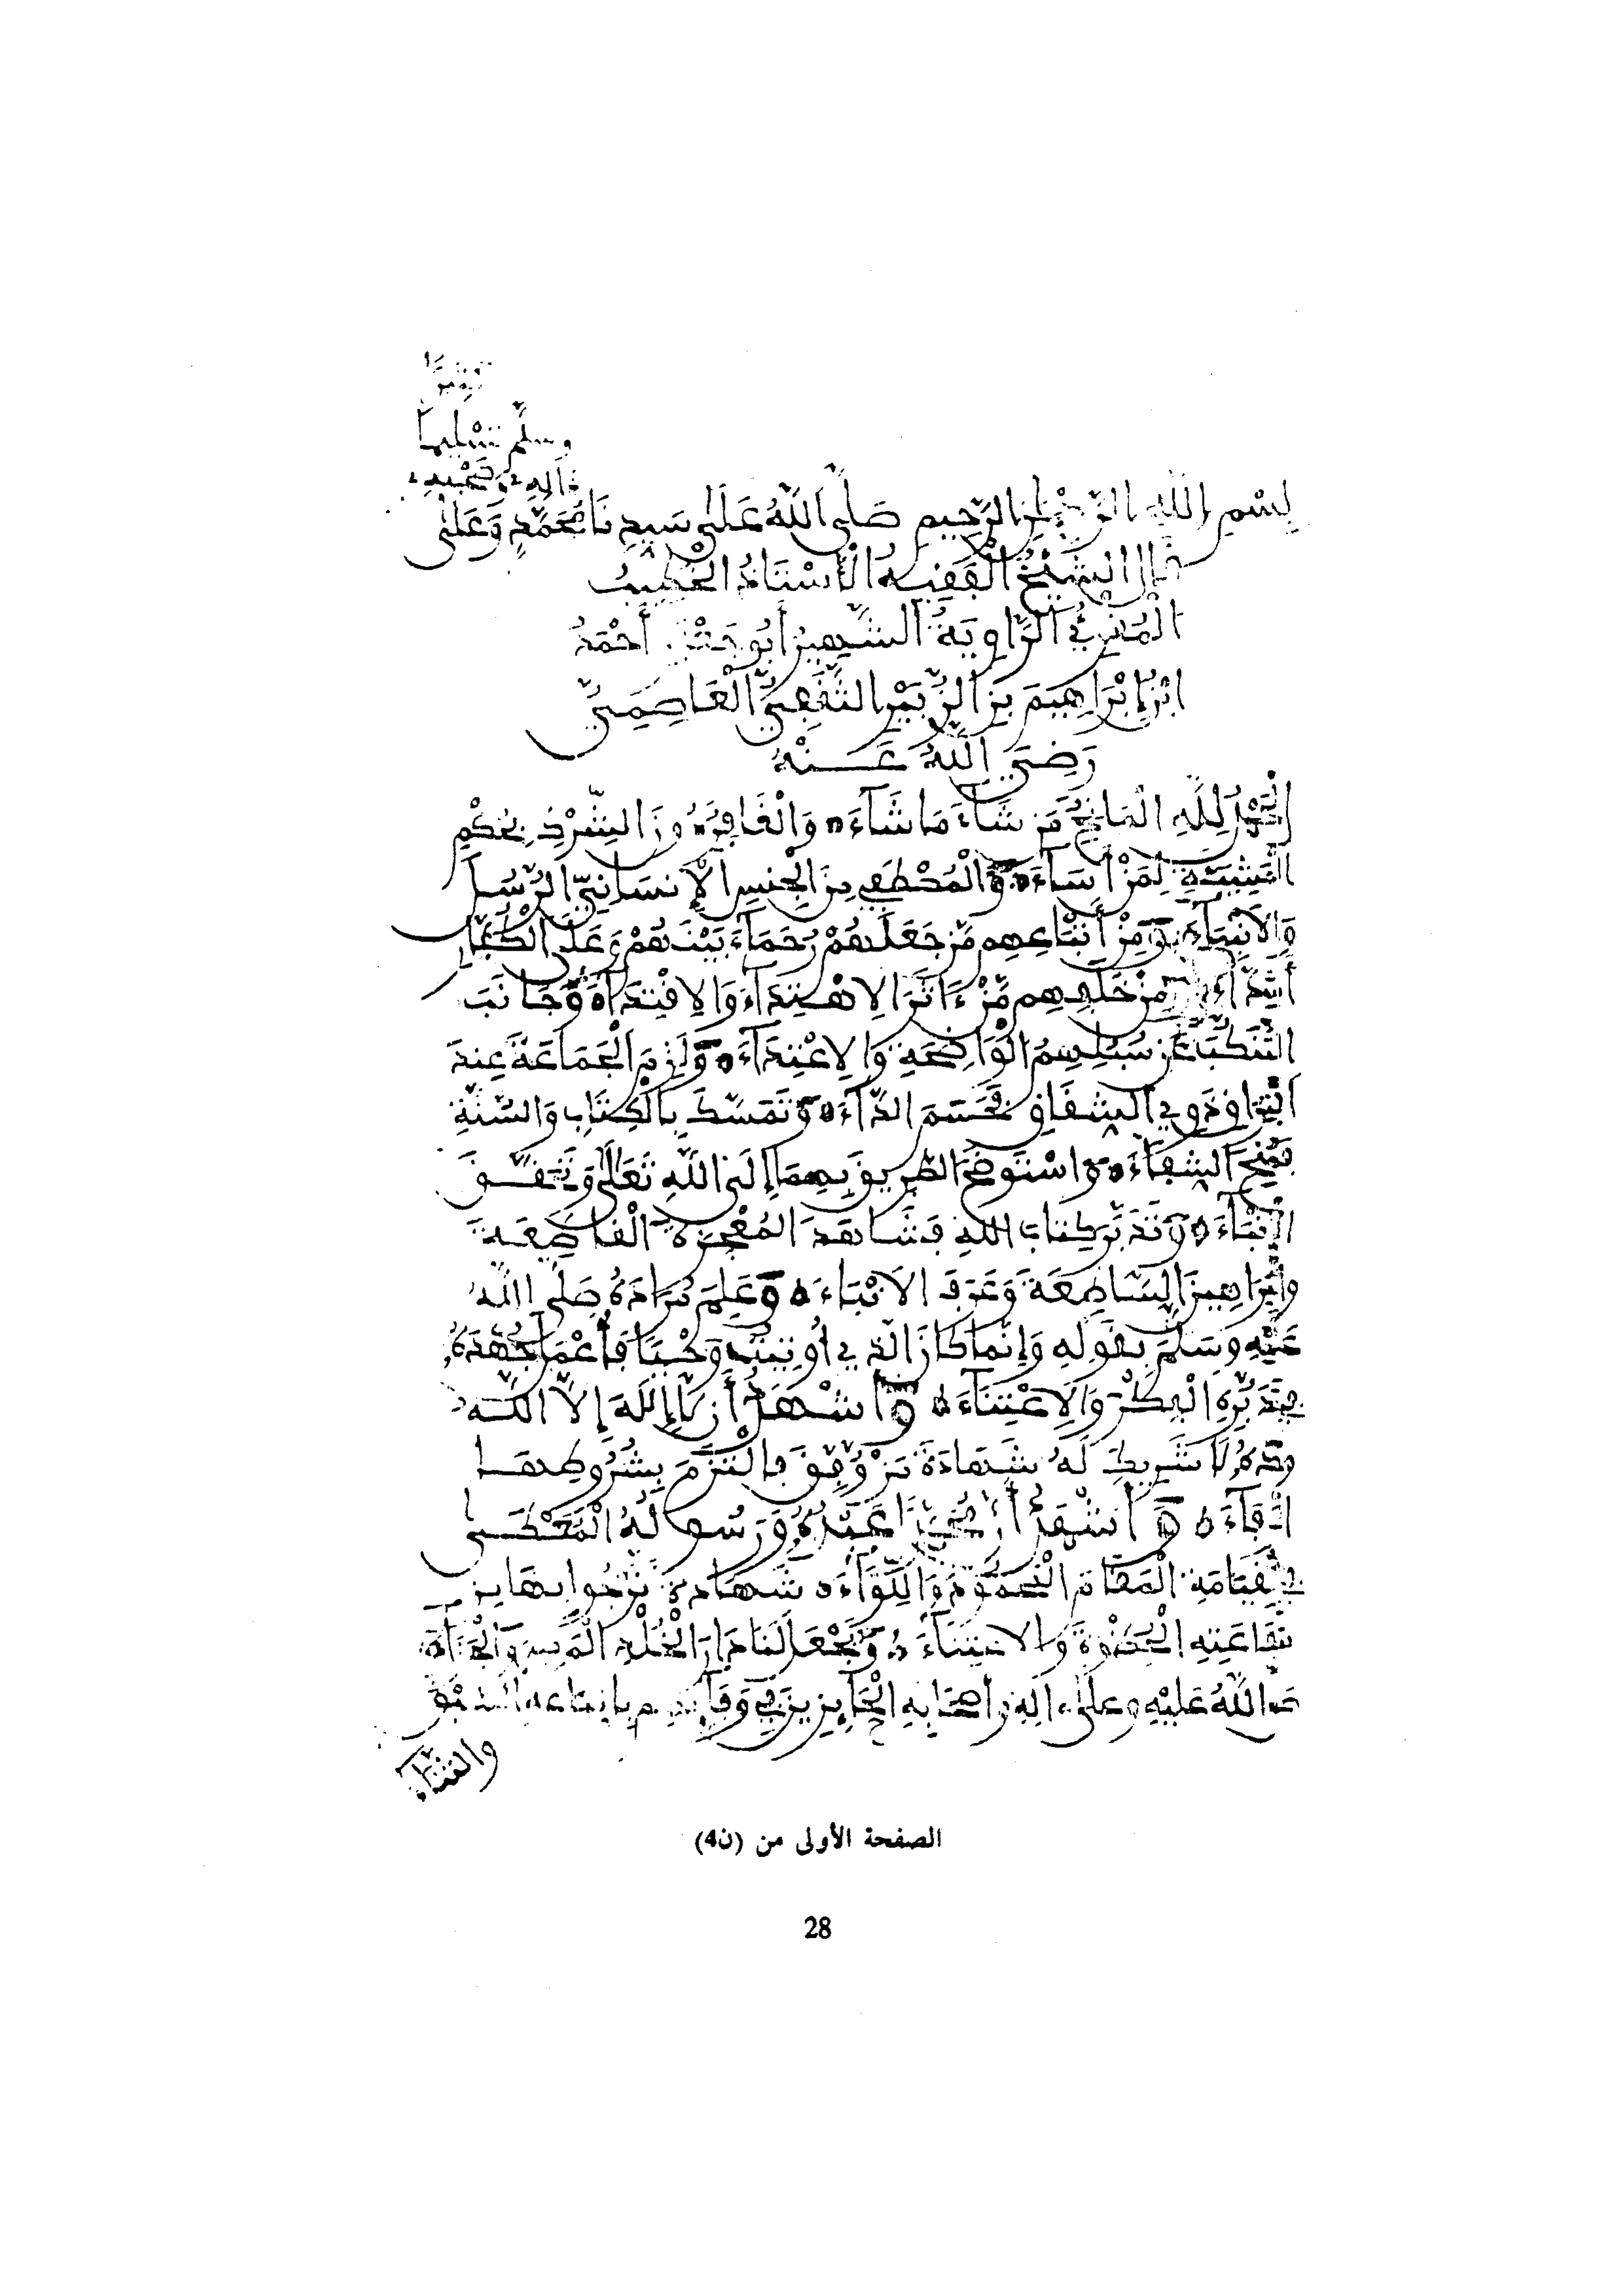 بِسْمِ اللَّهِ الرَّحْمَٰنِ الرَّحِيمِ صَلَّى اللَّهُ عَلَى سَيِّدِنَا مُحَمَّدٍ وَعَلَى
ءَالِهِ وَصَحْبِهِ
وسلَّم تسْليما
قال الشَّيْخُ الْفَقِيهُ الْأُسْتَاذُ الْخَطِيبُ
الْمُقْرِئُ الرَّاوِيَةُ الشَّهِيرُ أَبُو جَعْفَرٍ أَحْمَدُ
ابْنُ إِبْرَاهِيمَ بْنِ الزُّبَيْرِ الثَّقَفِيُّ الْعَاصِمِيُّ
رَضِيَ اللَّهُ عَنْهُ
الْحَمْدُ لِلَّهِ الْمَانِحِ مَنْ شَاءَ مَا شَاءَ وَالْغَافِرِ دُونَ الشِّرْكِ بِحُكْمِ
الْمَشِيئَةِ لِمَنْ أَسَاءَ وَالْمُصْطَفِي مِنَ الْجِنْسِ الْإِنسَانِيِّ الرُّسُلَ
وَالْأَنْبِيَاءَ وَمِنْ أَتْبَاعِهِم مَنْ جَعَلَهُمْ رُحَمَاءَ بَيْنَهُمْ وَعَلَى الْكُفَّارِ
أَشِدَّاءَ مِنْ خَلْفِهِم مَنْ ءَاثَرَ الِاهْتِدَاءَ وَالِاقْتِدَاءَ وَجَانَبَ
التَّنَكُّبَ عَنْ سُبُلِهِمُ الْوَاضِحَةِ وَالِاعْتِدَاءَ وَلَزِمَ الْجَمَاعَةَ عِندَ
ذوي الشِّقَاقِ فَحَسَمَ الدَّاءَ وَتَمَسَّكَ بِالْكِتَابِ وَالسُّنَّةِ
فَمُنِحَ الشِّفَاءَ وَاسْتَوْضَحَ الطَّرِيقَ بِهِمَا إِلَى اللَّهِ تَعَالَى
وَتَدَبَّرَ كِتَابَ اللَّهِ فَشَاهَدَ الْمُعْجِزَةَ الْقَاطِعَةَ
وَالْبَرَاهِينَ السَّاطِعَةَ وَعَرَفَ الْأَنْبَاءَ وَعَلِمَ مُرَادَهُ صَلَّى اللَّهُ
عَلَيْهِ وَسَلَّمَ بِقَوْلِهِ وَإِنَّمَا كَانَ الَّذِي أُوتِيتُهُ وَحْيًا فَأَعْمَلَ جُهْدَهُ
فِي تَدَبُّرِهِ الْفِكْرَ وَالِاعْتِنَاءَ وَأَشْهَدُ أَن لَا إِلَٰهَ إِلَّا اللَّهُ
وَحْدَهُ لَا شَرِيكَ لَهُ شَهَادَةَ مَنْ وُفِّقَ فَالْتَزَمَ بِشُرُوطِهَا
وَأَشْهَدُ أَنَّ مُحَمَّدًا عَبْدُهُ وَرَسُولُهُ الْمُعْطَى
فِي الْقِيَامَةِ الْمَقَامَ الْمَحْمُودَ وَاللِّوَاءَ شَهَادَةً نَرْجُوا بِهَا مِن
شَفَاعَتِهِ الْحُظْوَةَ وَالِاعْتِنَاءَ وَتَجْعَلُ لَنَا دَارَ الْخُلْدِ
صَلَّى اللَّهُ عَلَيْهِ وَعَلَى ءَالِهِ وَأَصْحَابِهِ الْحَائِزِينَ
والثناء
الصفحة الأولى من (ن4)
28